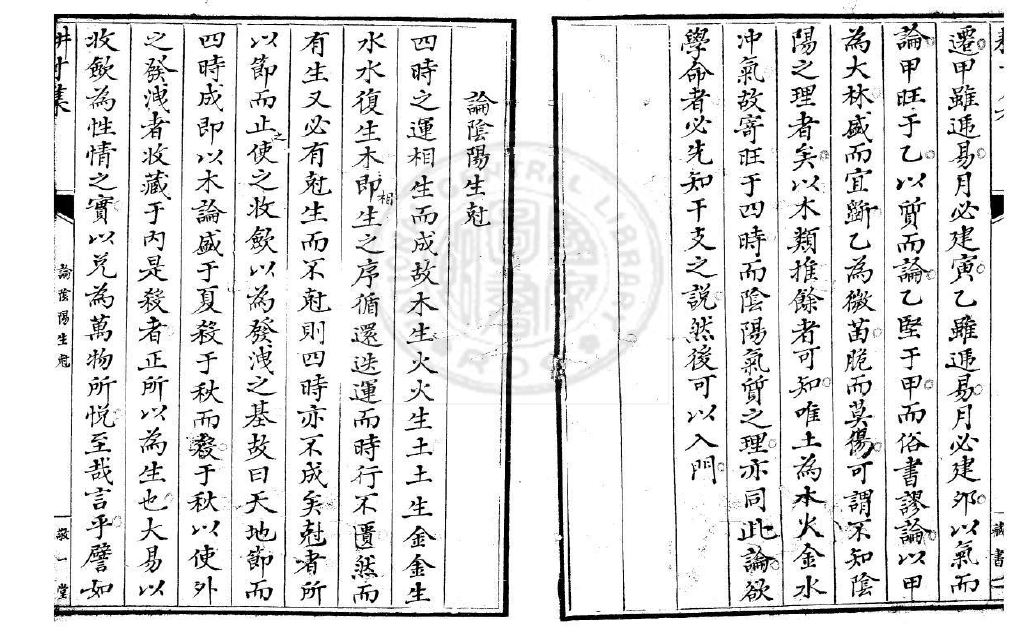 遷甲雖遞易月必建寅乙雖遞易月必建夘以氣而
論甲旺于乙以質而論乙堅于甲而俗書謬論以甲
為大林盛而宜斷乙為微苗脆而莫傷可謂不知陰
陽之理者矣以木類推餘者可知唯土為木火金水
冲氣故寄旺于四時而陰陽氣質之理亦同此論欲
學命者必先知干支之説然後可以入門
論陰陽生尅
四時之運相生而成故木生火火生土土生金金生
水水復生木即相生之序循還迭運而時行不匱然而
有生又必有尅生而不尅則四時亦不成矣尅者所
以節而止之使之收斂以為發洩之基故曰天地節而
四時成即以木論盛于夏殺于秋而殺于秋以使外
之發洩者收藏于内是殺者正所以為生也大易以
收斂為性情之實以兑為萬物所悦至哉言乎譬如
論陰陽生尅
敬一堂
藏書
CENTRAL LIBRARY